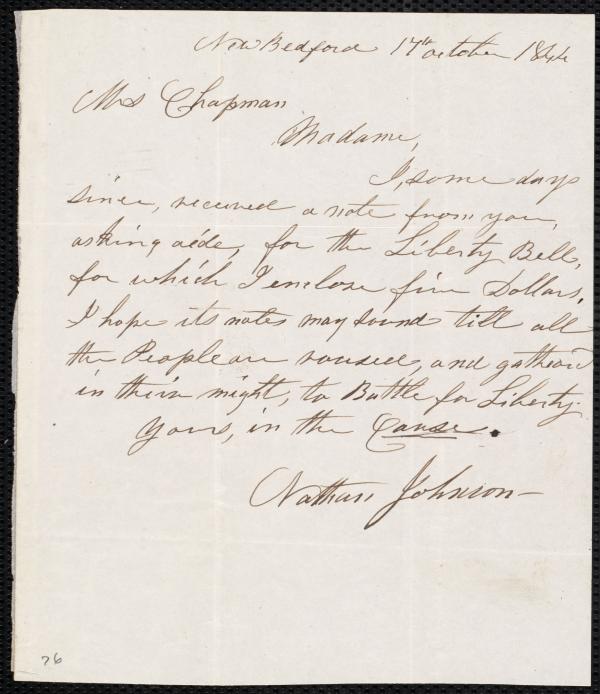 New Bedford 17th October 1844
Mrs Chapman
Madame,
I, some days
since, received a note from you,
asking aide, for the Liberty Bell,
for which I enclose five Dollars,
I hope its notes may sound till all
the People are roused, and gather'd
in their might, to Battle for Liberty.
Yours, in the Cause.
Nathan Johnson
76